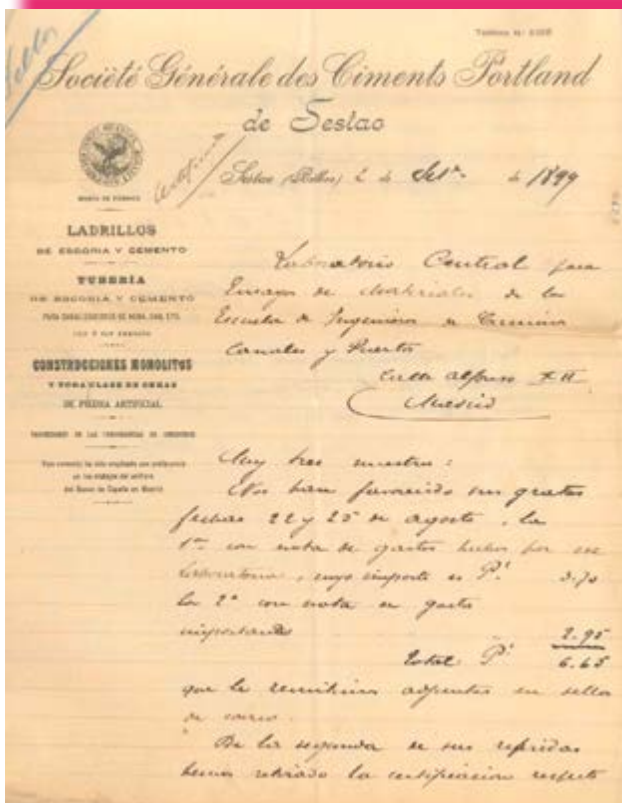 Sellos
Société Générale des Ciments Portland
de Sestao
Certificado
Sestao (Bilbao) 2 de Set.e de 1899
MARCA DE FÁBRICA
LADRILLOS
DE ESCORIA Y CEMENTO
TUBERÍA
DE ESCORIA Y CEMENTO
CONSTRUCCIONES MONOLITOS
Y TODA CLASE DE OBRAS
DE PIEDRA ARTIFICIAL
del Banco de España en Madrid
Laboratorio Central para
Ensayo de Materiales de la
Escuela de Ingenieros de Caminos
Canales y Puertos
Calle Alfonso XII
Madrid
Muy Sres nuestros:
Nos han favorecido sus gratas
fechas 22 y 25 de agosto, la
1ª con nota de gastos hechos por ese
Laboratorio, cuyo importe es Pts 3.70
la 2ª con nota de gastos
importando 2.95
Total Pts 6.65
que le remitimos adjuntos en sellos
de correo.
De la segunda de sus referidas
hemos retirado la certificación respecto